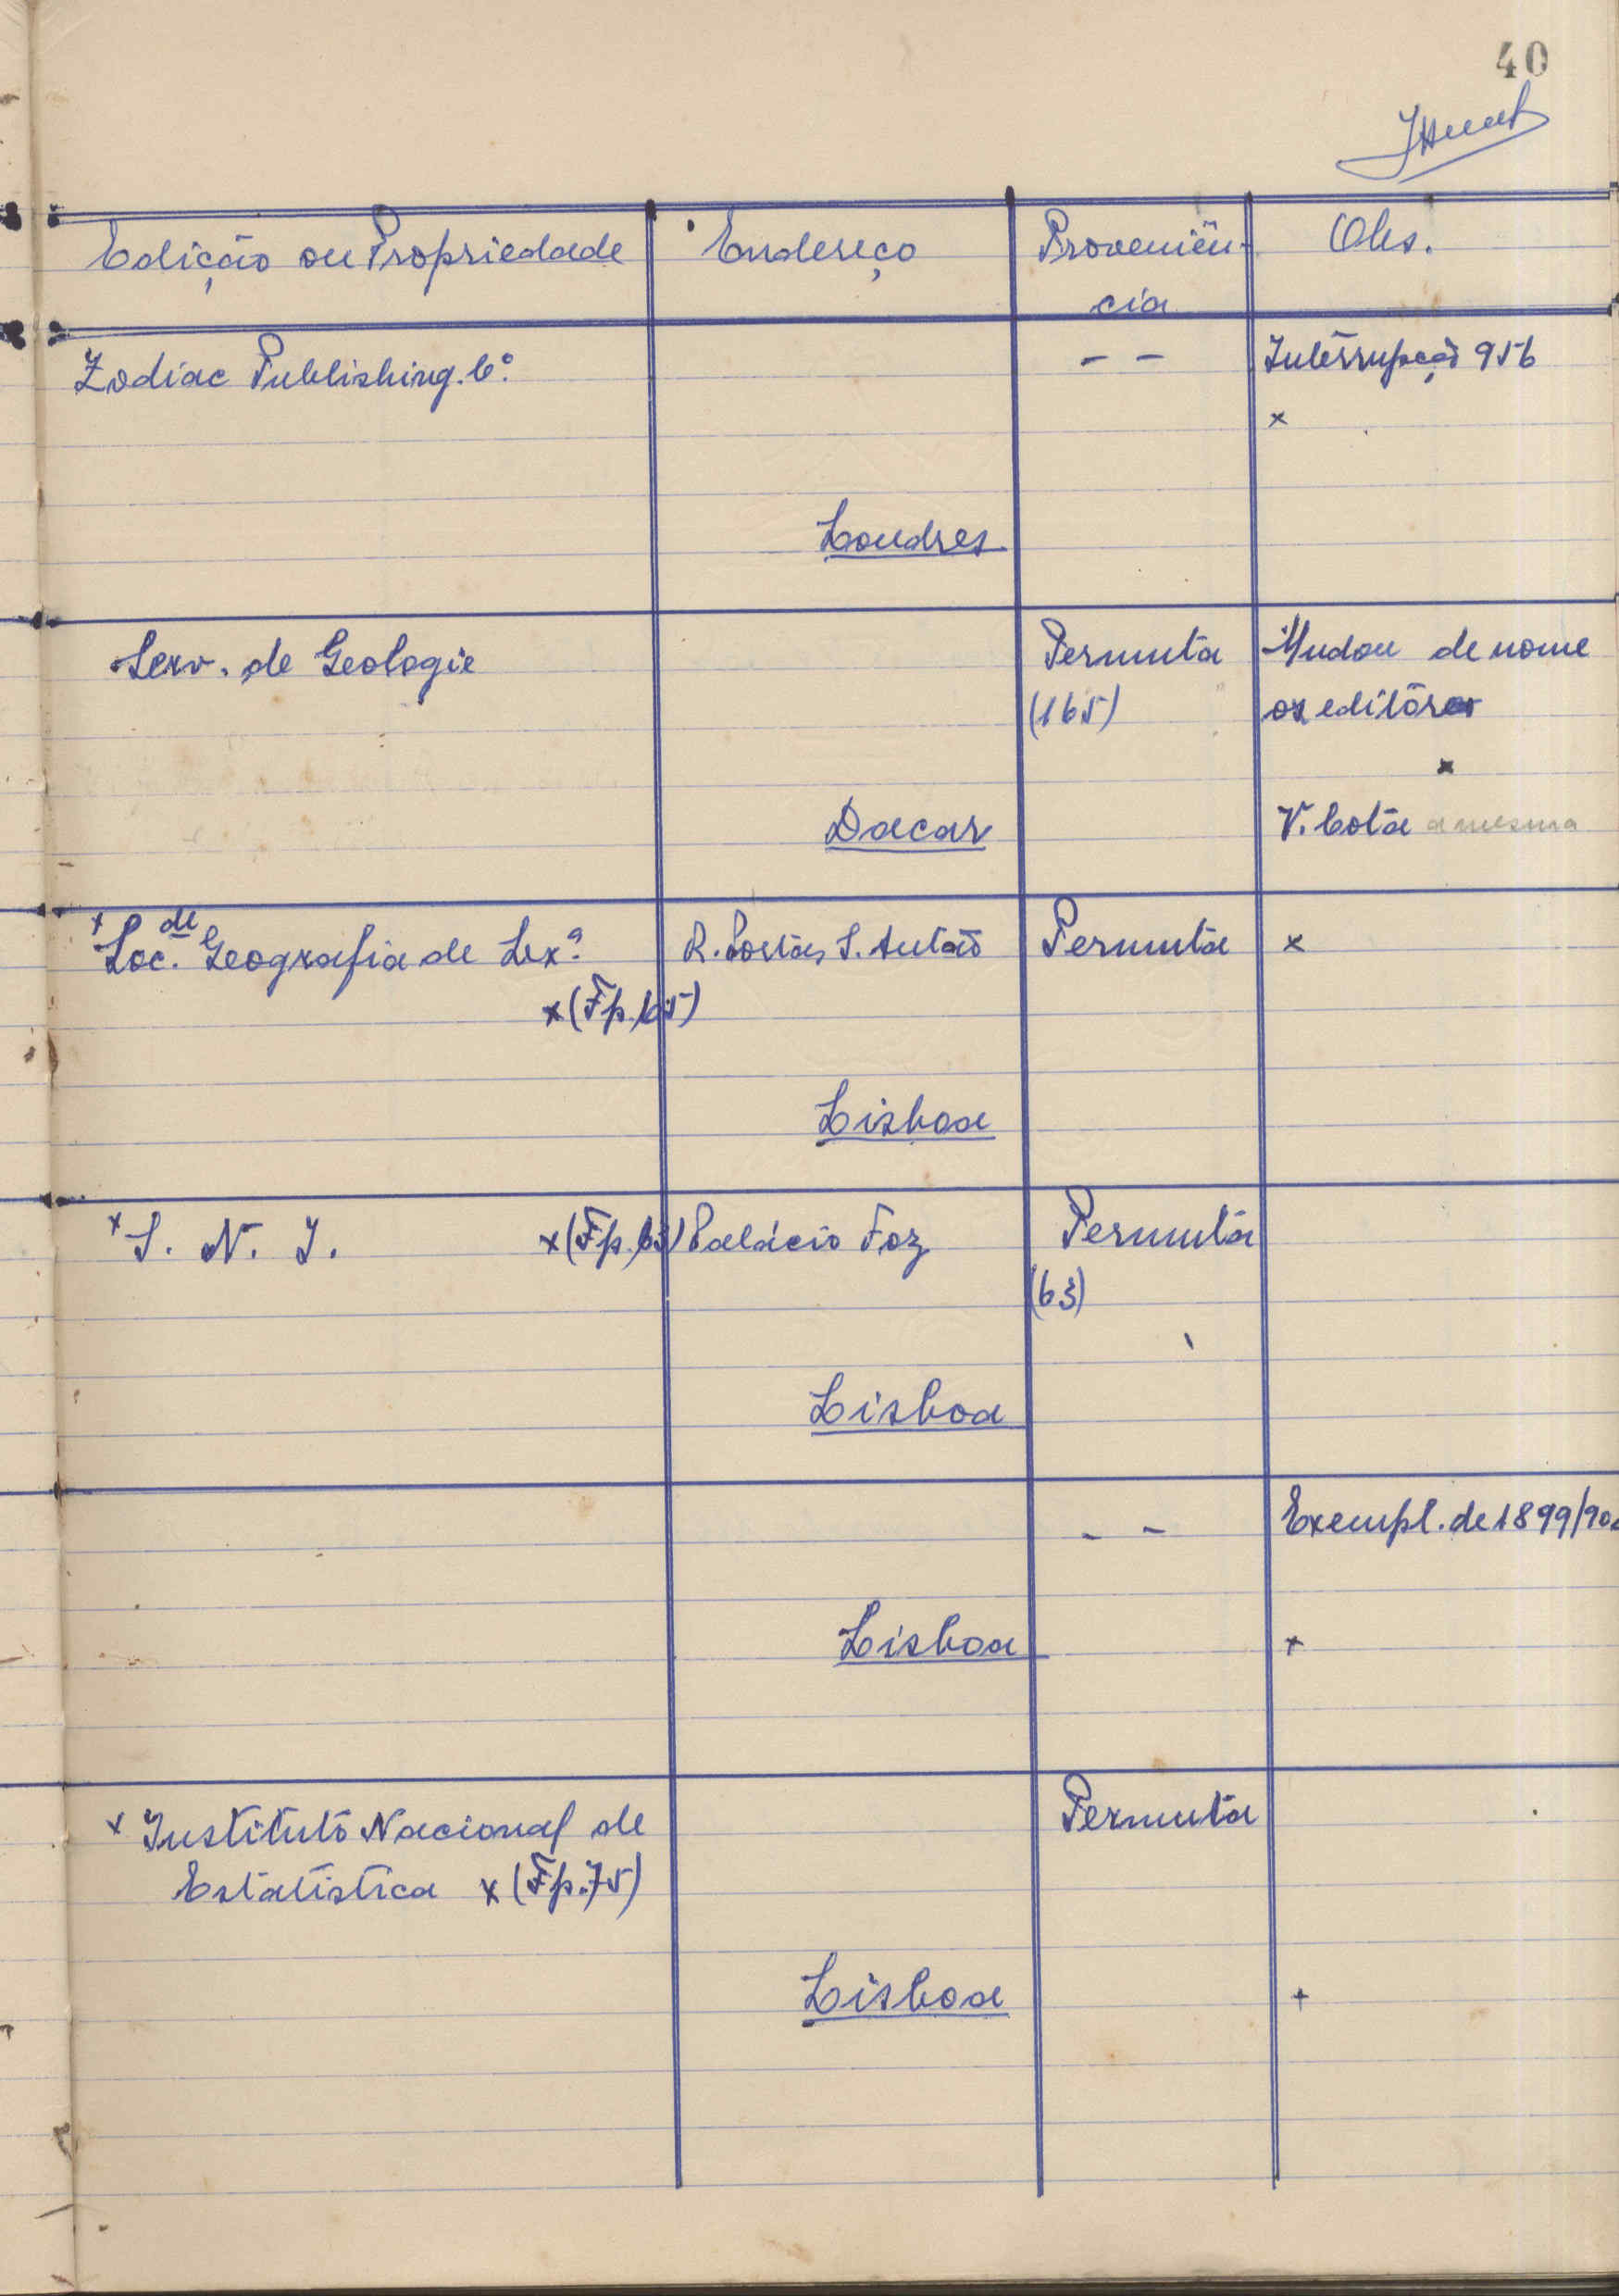 40
Edição ou Propriedade Endereço Proveniên- Obs.
cia
Zodiac Publishing. Cº. - - Interrupção 956
x
Londres
Serv. de Geologie Permuta Mudou de nome
(165) os editores
x
Dacar V. Cota a mesma
x Soc. de Geografia de Lxª R. Portas S. Antão Permuta x
x (Fp. 65)
Lisboa
x S. N. I. x (Fp. 63) Palácio Foz Permuta
(63)
Lisboa
- - Exempl. de 1899/90
Lisboa x
x Instituto Nacional de Permuta
Estatística x (Fp. 75)
Lisboa +